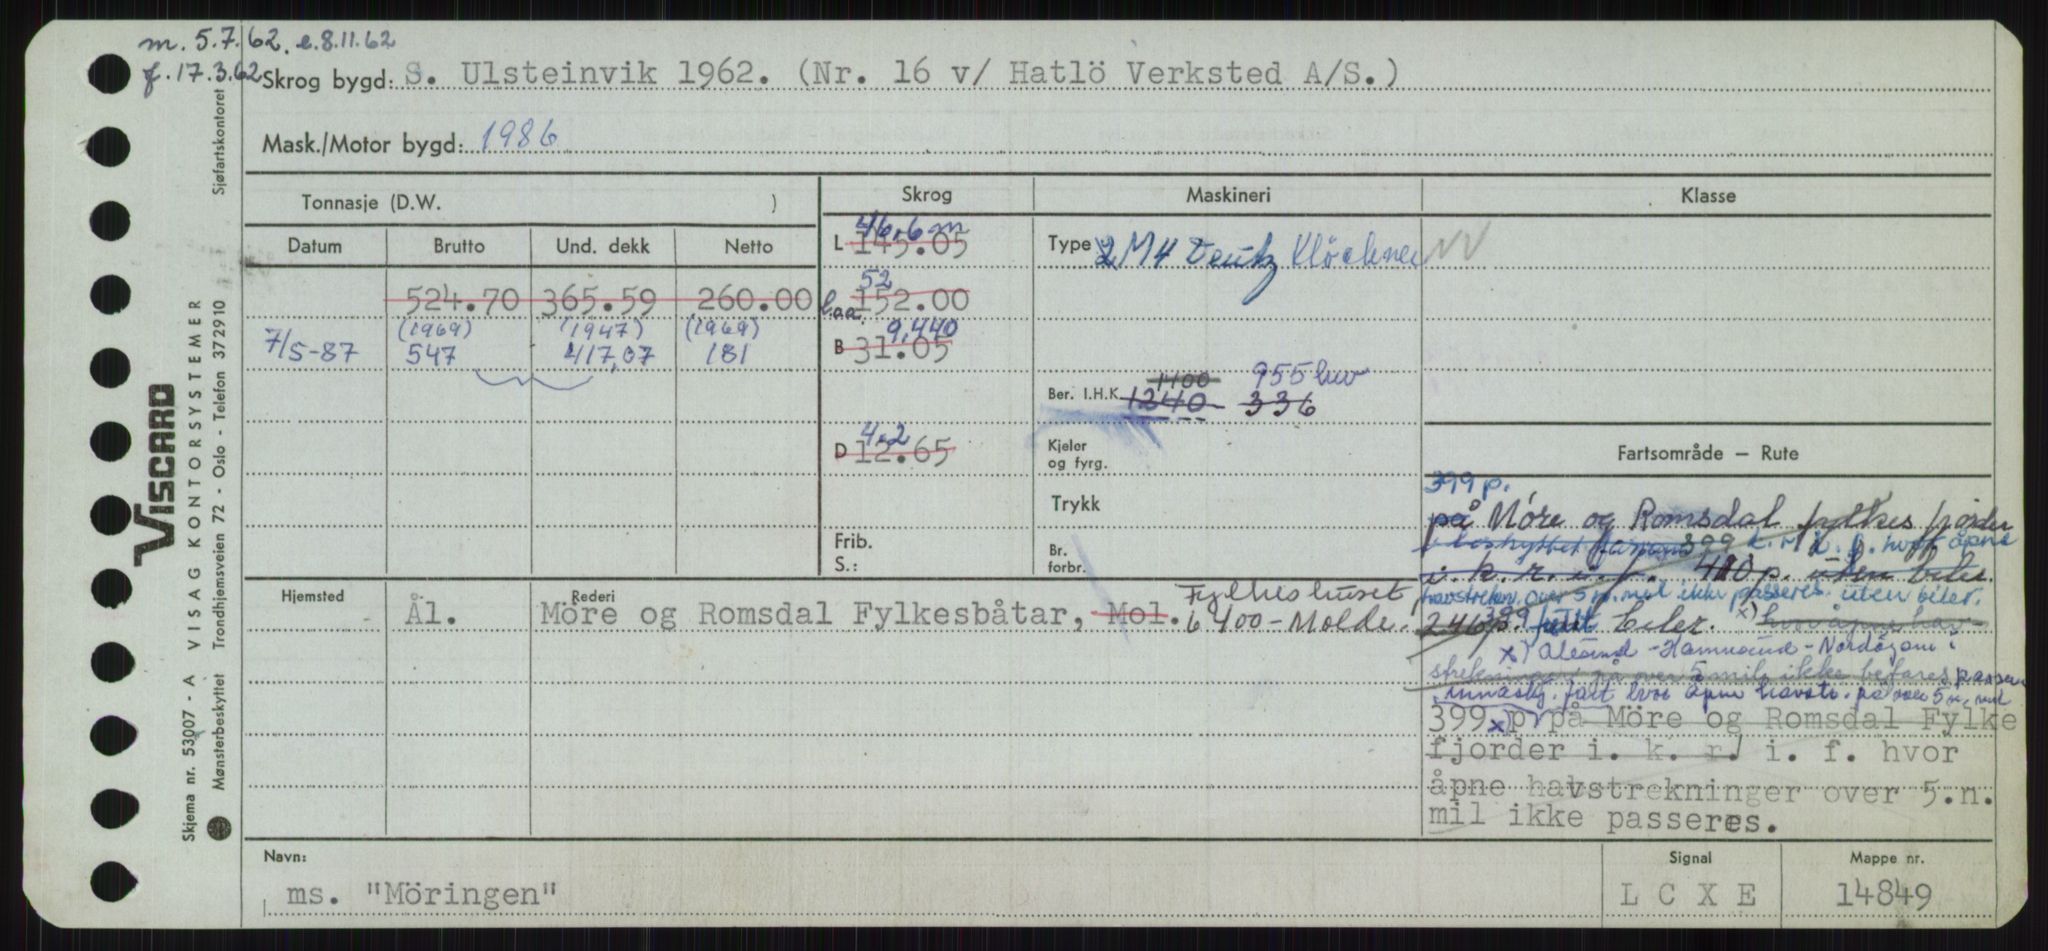 m. 5.7.62. e. 8.11.62
f. 17.3.62
Skrog bygd: S. Ulsteinvik 1962. (Nr. 16 v/ Hatlö Verksted A/S.)
Mask./Motor bygd: 1986
Tonnasje (D.W. )
Skrog
Maskineri
Klasse
Datum Brutto Und. dekk Netto
L 145.05 46,6 m
Type 2 M4 Deutz Klöckner
524.70 365.59 260.00
l.aa. 152.00 52
(1969) (1947) (1969)
7/5-87 547 417,07 181
B 31.05 9,440
Ber. I.H.K. 1240 1100 336 955 hw
D 12.65 4,2
Kjeler
og fyrg.
Trykk
Frib.
S.:
Br.
forbr.
Fartsområde – Rute
399 p.
på Möre og Romsdal fylkes fjorder
i beskyttet fart 399 k. r. i. f. hvor åpne
i. k. r. i. f. 410 p. uten biler.
havstrekn. over 5 n. mil ikke passeres. uten biler.
246 p. 399 biler. x) hvor åpne hav-
x) Ålesund - Hamnsund - Nordöyane i
strekninger på over 5 mil ikke befares passeres
innaskj. fart hvor åpne havstr. på over 5 n. mil
399 x) p. på Möre og Romsdal Fylke
fjorder i. k. r. i. f. hvor
åpne havstrekninger over 5.n.
mil ikke passeres.
Hjemsted
Ål.
Rederi
Möre og Romsdal Fylkesbåtar, Mol. Fylkeshuset
6400 - Molde.
Navn:
ms. "Möringen"
Signal
L C X E
Mappe nr.
14849
VISCARD
VISAG KONTORSYSTEMER
Sjøfartskontoret
Trondhjemsveien 72 - Oslo - Telefon 372910
Skjema nr. 53007 - A
Mønsterbeskyttet